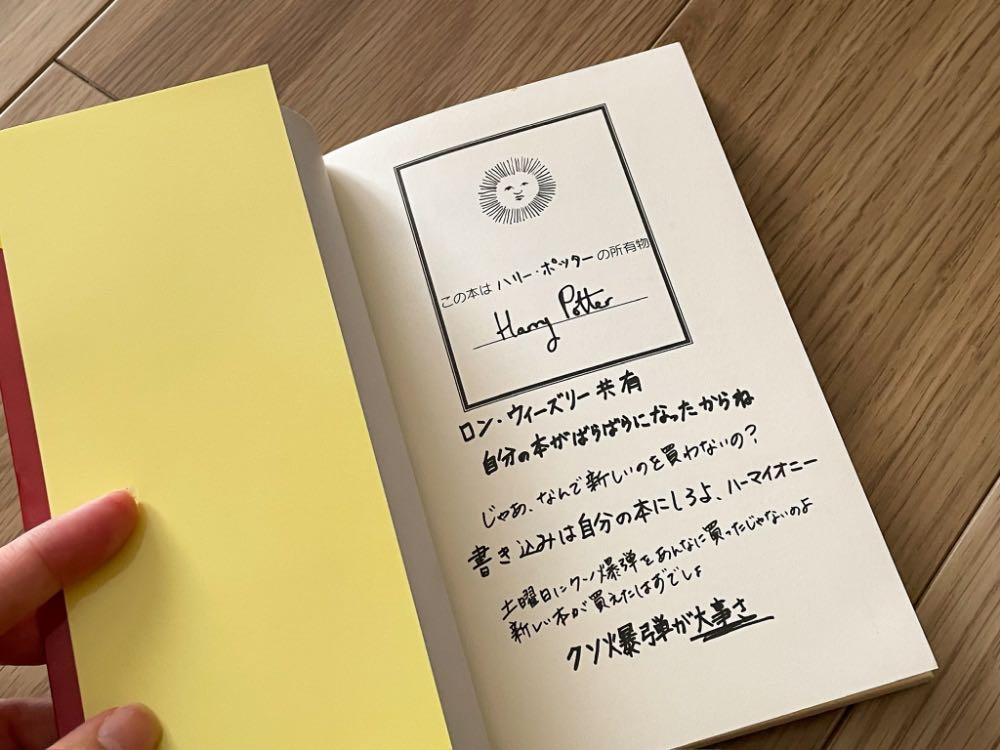 この本は ハリー・ポッター の所有物
Harry Potter
ロン・ウィーズリー共有
自分の本がばらばらになったからね
じゃあ、なんで新しいのを買わないの?
書き込みは自分の本にしろよ、ハーマイオニー
土曜日にクソ爆弾をあんなに買ったじゃないのよ
新しい本が買えたはずでしょ
クソ爆弾が大事さ